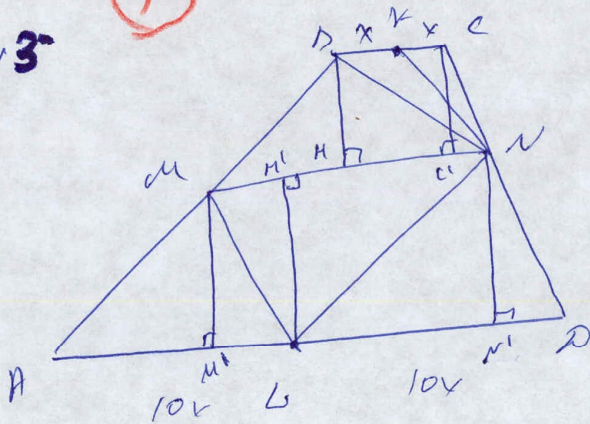 3
B x K x C
M H' H C' N
A M' L N' D
10x 10x